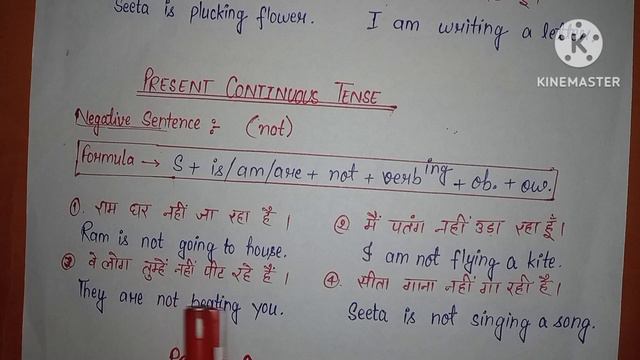 Seeta is plucking flower. I am writing a
KINEMASTER
PRESENT CONTINUOUS TENSE
Negative Sentence :- (not)
Formula → S + is/am/are + not + verb ing + ob. + ow.
①. राम घर नहीं जा रहा है ।
Ram is not going to house.
② मैं पतंग नहीं उडा रहा हूँ ।
I am not flying a kite.
③ वे लोग तुम्हें नहीं पीट रहे हैं ।
They are not beating you.
④. सीता गाना नहीं गा रही है ।
Seeta is not singing a song.